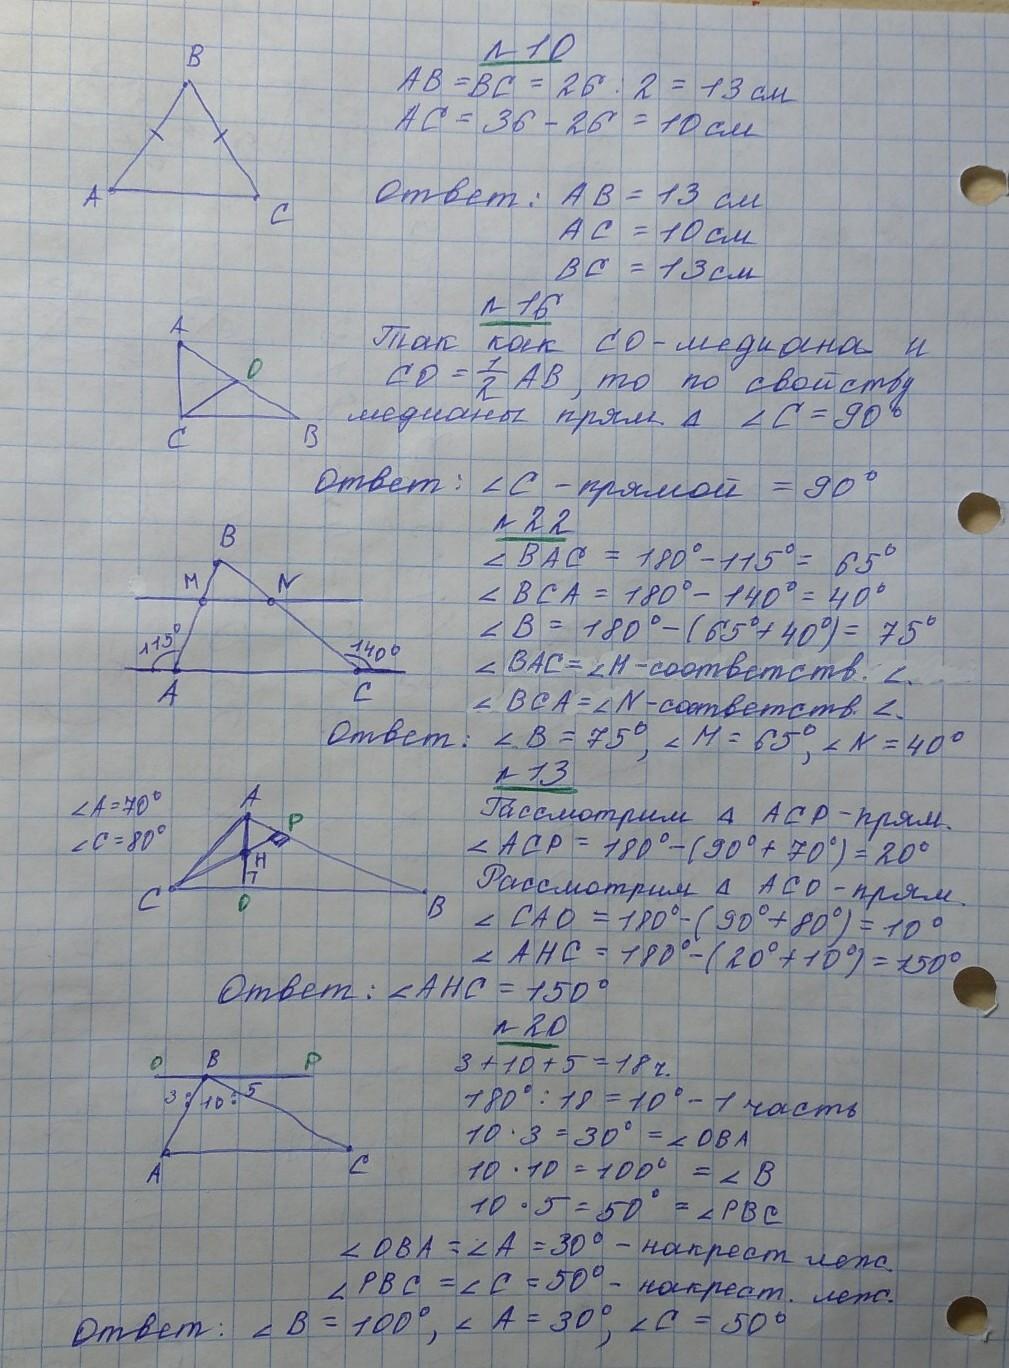 №10
B
AB = BC = 26 : 2 = 13 см
AC = 36 - 26 = 10 см
A
C
Ответ: AB = 13 см
AC = 10 см
BC = 13 см
№16
A
O
C
B
Так как CO - медиана и
CO = 1/2 AB, то по свойству
медианы прям. Δ ∠C = 90°
Ответ: ∠C - прямой = 90°
№22
B
M
N
115°
140°
A
C
∠BAC = 180° - 115° = 65°
∠BCA = 180° - 140° = 40°
∠B = 180° - (65° + 40°) = 75°
∠BAC = ∠M - соответств. ∠.
∠BCA = ∠N - соответств. ∠.
Ответ: ∠B = 75°, ∠M = 65°, ∠N = 40°
№13
∠A = 70°
∠C = 80°
A
P
H
C
O
B
Рассмотрим Δ ACP - прям.
∠ACP = 180° - (90° + 70°) = 20°
Рассмотрим Δ ACO - прям.
∠CAO = 180° - (90° + 80°) = 10°
∠AHC = 180° - (20° + 10°) = 150°
Ответ: ∠AHC = 150°
№20
O
B
P
3 : 10 : 5
A
C
3 + 10 + 5 = 18 ч.
180° : 18 = 10° - 1 часть
10 · 3 = 30° = ∠OBA
10 · 10 = 100° = ∠B
10 · 5 = 50° = ∠PBC
∠OBA = ∠A = 30° - накрест леж.
∠PBC = ∠C = 50° - накрест. леж.
Ответ: ∠B = 100°, ∠A = 30°, ∠C = 50°